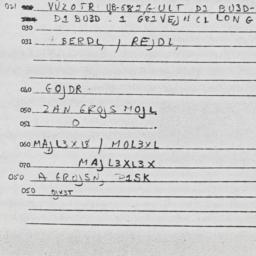 021 VUZOTR UB-682, GULT DI BU3D-
DI BU3D. 1 G81VEJN CL LONG
030
031 BERDL, / REJDL,
040 GOJDR.
050 ZAN GROJS MOJL
051 O
060 MAJL3X13 / MOL3XL
070 MAJL3XL3X
050 A GROJSN, DISK
050